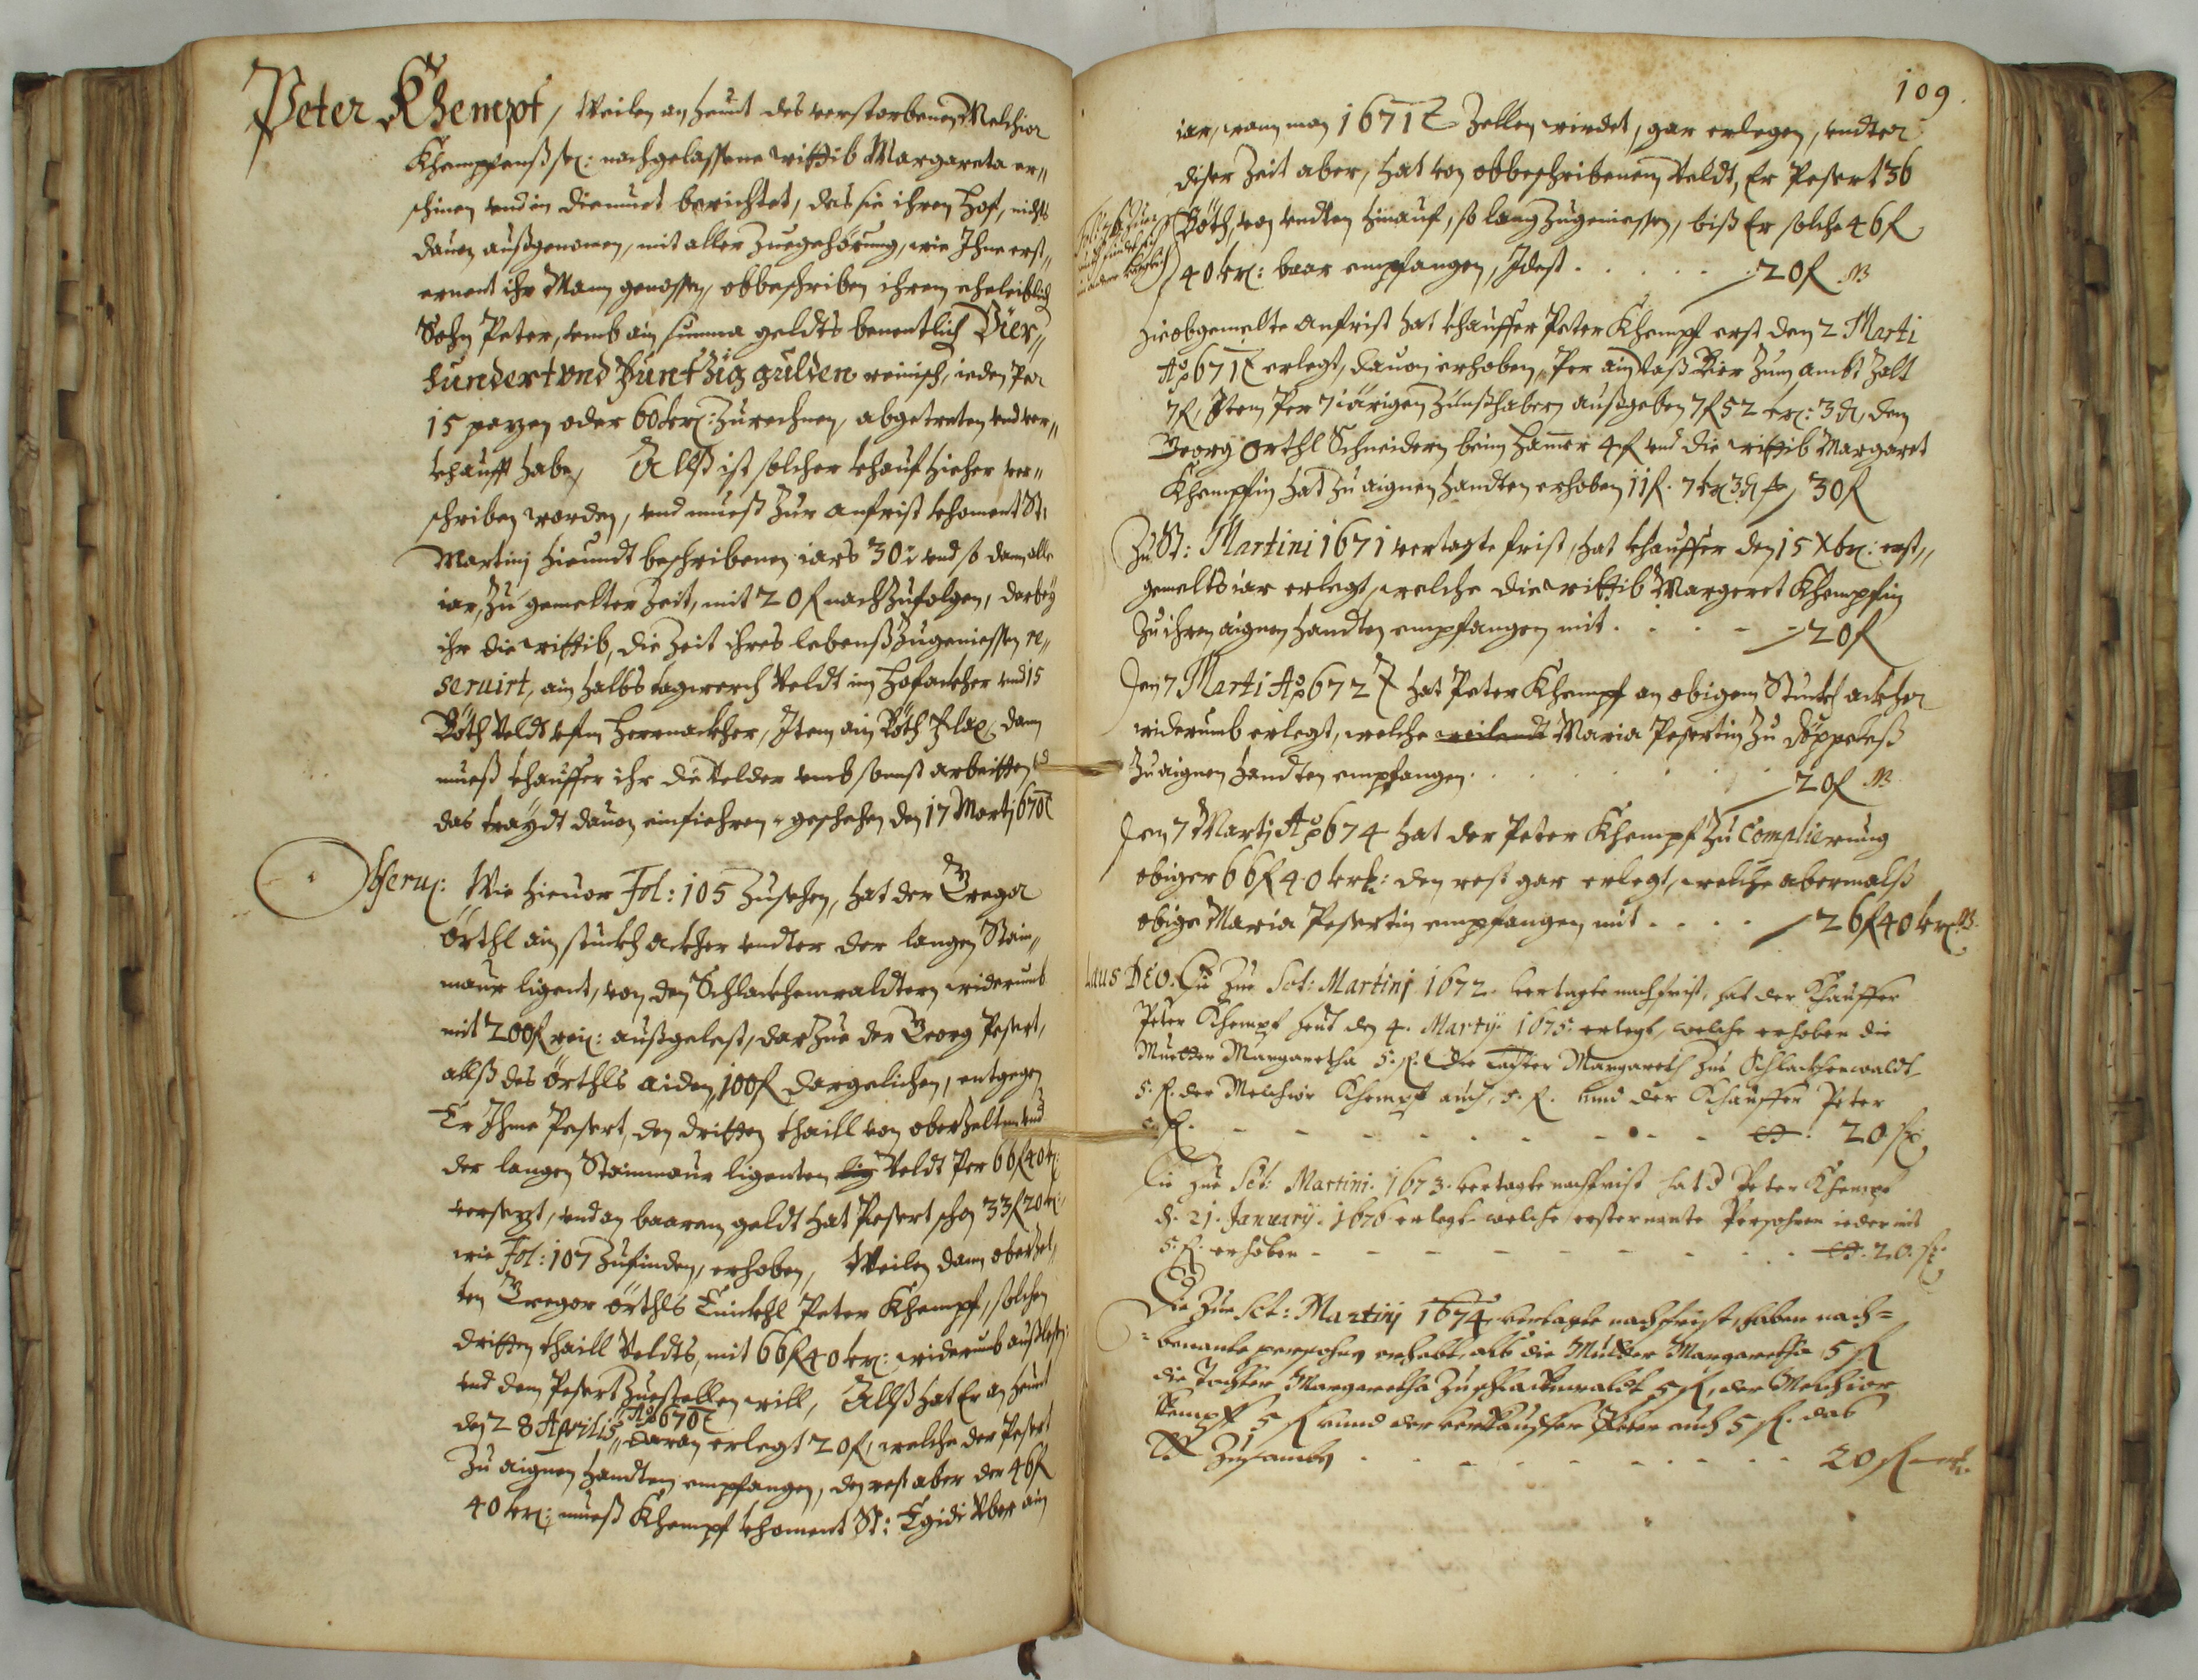 Peter Khempf, Weilen an heunt des verstorbenen Melchior
Khempfenß sel: nachgelassene wittib Margareta er„
schinen vnd in diemuet berichtet, das sie ihren Hof, nichts
dauon außgenomen, mit aller Zuegehörung, wie Ihne erst„
ernent ihr Mann genossen, obbeschriben ihrem eheleiblich
Sohn Peter, vmb ain summa geldts benentlich Vier„
hundert vnd Funfzig gulden reinisch, ieden per
15 pazen oder 60 kr: zu rechnen, abgetreten vnd ver„
khaufft habe, Allß ist solcher khauf hieher ver„
schriben worden, vnd mueß zur anfrist khoment St:
Martinj hieundt beschribenen iars 30 f vnd so dann alle
iar, zu gemelter Zeit, mit 20 f nachzufolgen, darbey
ihr die wittib, die Zeit ihres lebenß zugeniessen re„
seruirt, ain halbs tagwerch Veldt im Hofackher vnd 15
Böth Veldt vfm Herrnackher, Item ain Böth Flax, dann
mueß khauffer ihr die Velder vmb sonst arbeitten vnd
das traydt dauon einfiehren, geschehen den 17 Martj 670
Obseru: Wie hieuor Fol: 105 zusehen, hat der Gregor
Örthl ain stuckh ackher vndter der langen Stain„
maur ligent, von den Schlackhenwaldtern widerumb
mit 200 f rei: außgelest, dar Zue der Georg Pesert,
allß des Örthls aiden, 100 f dargelichen, entgegen
Er Ihme Pesert, den dritten thaill von oberzelten vnd
der langen Stainmaur ligenten Veldt per 66 f 40 kr:
versezt, vnd an baarem geldt hat Pesert schon 33 f 20 kr:
wie Fol: 107 zufinden, erhoben, Weilen dann oberzel„
ten Gregor Örthls Enickhl Peter Khempf, solchen
dritten thaill Veldts, mit 66 f 40 kr: widerumb außlesen
vnd dem Pesert zuestellen will, Allß hat Er an heunt
den 28 Aprilis Ao 670 daran erlegt 20 f, welche der Pesert
zu aignen handten empfangen, den rest aber der 46 f
40 kr: mueß Khempf khoment St: Egidi vber ain
109.
iar, wann man 1671 Zellen wirdet, gar erlegen, vndter
diser Zeit aber, hat von obbeschribenem Veldt, Er Pesert 36
Böth, von vndten hinauf, so lang zugeniessen, biß Er solche 46 f
40 kr: baar empfangen, Idest . . . . . 20 f NB
Hieobgemelte Anfrist hat khauffer Peter Khempf erst den 2 Marti
Ao 671 erlegt, dauon erhoben, per ain Vaß Bier zum ambt Zalt
7 f, Item per 7 iärigen Zunßhabern außgeben 7 f 52 kr: 3 d, dem
Georg Orthl Schneidern beim Hamer 4 f vnd die wittib Margaret
Khempfin hat zu aignen handten erhoben 11 f. 7 kr 3 d, 30 f
Zu St: Martini 1671 vertagte frist, hat khauffer den 15 Xbr: erst„
gemelts iar erlegt, welche die wittib Margaret Khempfin
zu ihren aignen handten empfangen mit . . . . 20 f
Den 7 Marti Ao 672 hat Peter Khempf an obigem Stuckh ackher
widerumb erlegt, welche weilandt Maria Pesertin zu Döppeleß
zu aignen handten empfangen . . . . . . 20 f NB
Den 7 Martj Ao 674 hat der Peter Khempf zu Complierung
obiger 66 f 40 kr: den rest gar erlegt, welche abermalß
obige Maria Pesertin empfangen mit . . . . 26 f 40 kr: NB.
Laus Deo. Die zue Sct: Martinj 1672. vertagte nachfrist, hat der Khauffer
Peter Khempf heut den 4. Martij. 1675. erlegt, welche erhoben die
Muetter Margaretha 5. f. die Tochter Margareth zue Schlackhenwaldt
5. f. der Melchior Khempf auch, 5. f. vnd der Khauffer Peter
5 f. - - - - - - - - - 20 f:
Die zue Sct: Martini. 1673. vertagte nachfrist hat d Peter Khempf
d. 21. January. 1676 erlegt. welche ersternante Persohnen ieder mit
5. f. erhoben - - - - - - - - - 20. f:
Die zue Sct: Martinj 1674, vertagte nachfrist, haben nach=
=benante persohnen erhebt, alß die Mutter Margaretha 5 f
die Tochter Margaretha zu schlackenwaldt 5 f, der Melchior
Kempf 5 f vnnd der verkauffer Peter auch 5 f. das
zusamben . . - - - - - . . 20 f